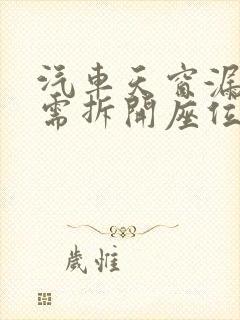 汽車天窗漏
需拆開座位
歲惟